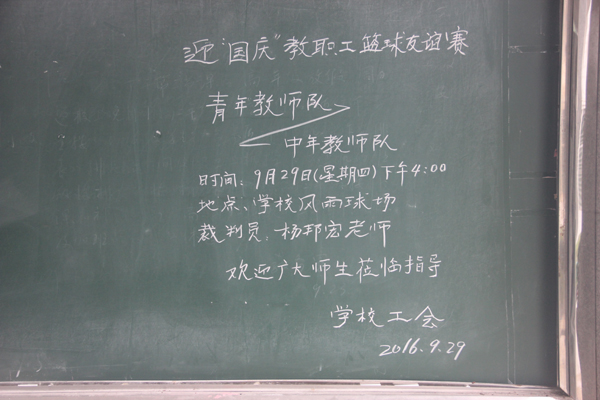 迎“国庆”教职工篮球友谊赛
青年教师队
中年教师队
时间:9月29日(星期四)下午4:00
地点:学校风雨球场
裁判员:杨邦宏老师
欢迎广大师生莅临指导
学校工会
2016.9.29